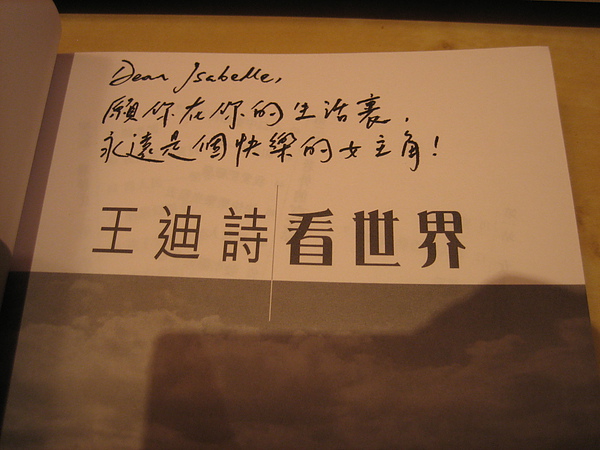 Dear Isabelle,
願你在你的生活裏，
永遠是個快樂的女主角！
王迪詩看世界